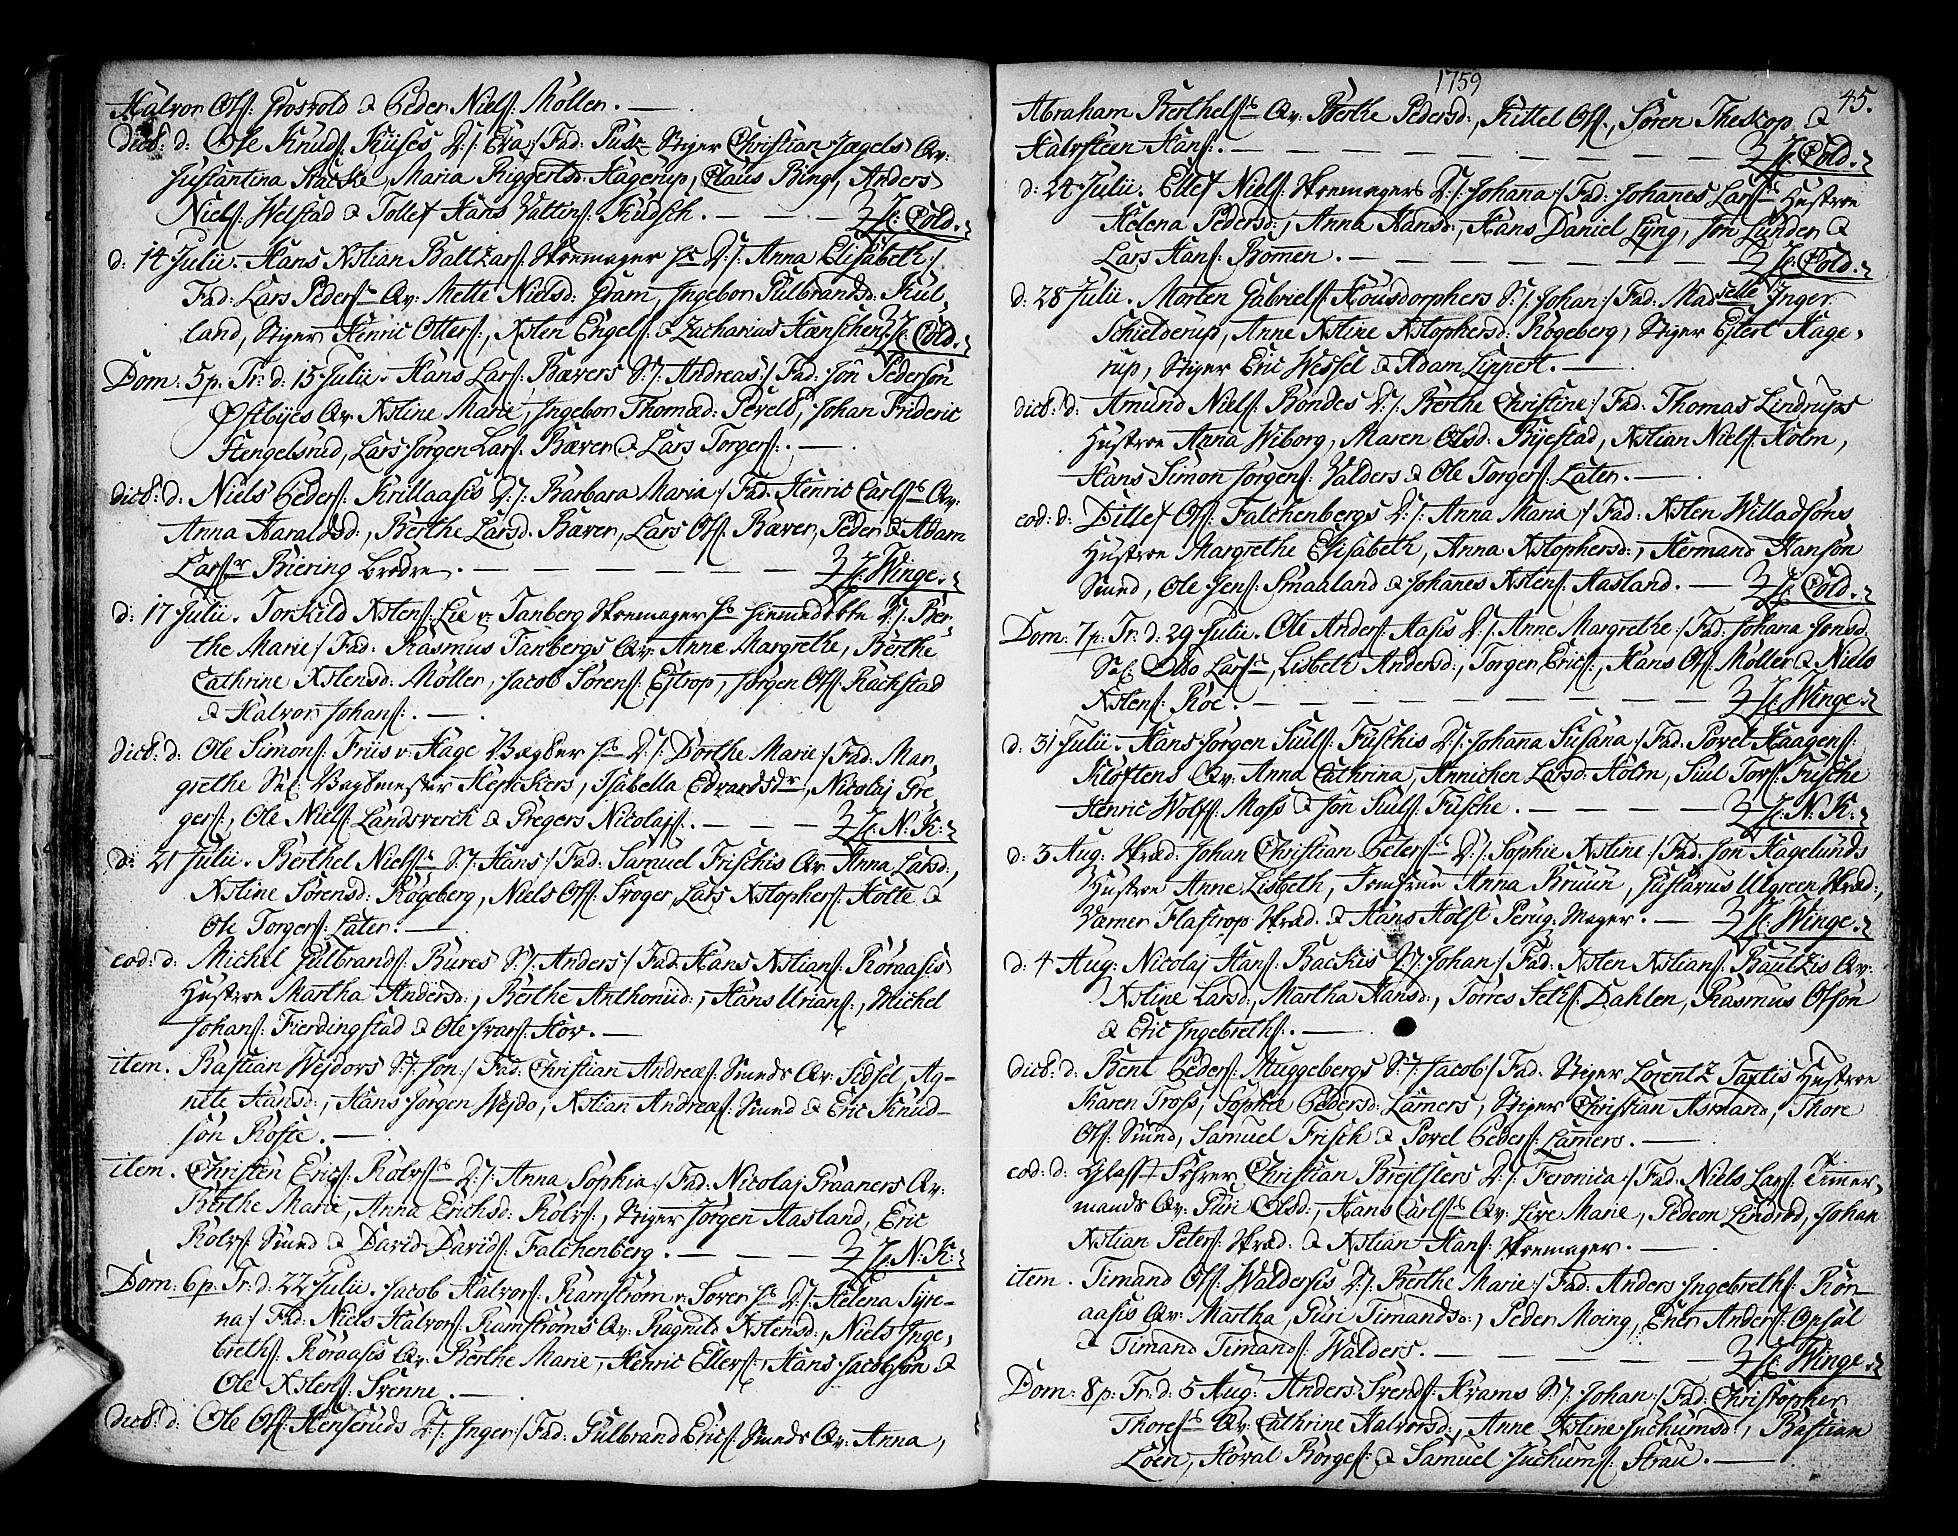 Halvor Ols: Groswold & Peder Niels: Möller. —
dict: d: Ole Knuds: Kuses D:/: Eva :/ Fad: Stiger Christian Jægels Qv:
Justantina Stacke, Maria Riggertsd: Hagerup, Claus Bing, Anders
Niels: Welstad & Tollef Hans Valtins: Kudsch. — — — H: Cold.
d: 14 Julii. Hans Xstian Baltzars: Skoemager D:/: Anna Elisabeth :/
Fad: Lars Peders: Qv: Mette Nielsd: Gram, Ingebor Gulbrandsd: Kul-
land, Stiger Henric Otters:, Xsten Engels: & Zacharius Hanschen H: Cold.
Dom: 5 p. Tr: d: 15 Julii. Hans Lars: Bævers S:/: Andreas :/ Fad: Jon Pedersön
Östbyes Qv: Xstine Marie, Ingebor Thomæd: Peveld, Johan Frideric
Stengelsrud, Lars Jörgen Lars: Bæver & Lars Torgers: . —
dict: d: Niels Peders: Krillaasis D:/: Barbara Maria :/ Fad: Henric Carls: Qv:
Anna Haraldsd:, Berthe Larsd: Bæver, Lars Ols: Bæver, Peder & Adam
Lars: Biering brödre. — — — — — — H: Winge.
d: 17 Julii. Torkild Xstens: Lie v: Tanberg Skoemager hiemedöbte D:/: Ber-
the Marie :/ Fad: Rasmus Tanbergs Qv: Anne Margrethe, Berthe
Cathrine Xstensd: Möller, Jacob Sörens: Ejtrop, Jörgen Ols: Rachstad
& Halvor Johans: . —
dict: d: Ole Simons: Friis v: Hage D:/: Dorthe Marie :/ Fad: Mar-
grethe Sal: Bagemester Hefckers, Isabella Edvardsdr, Nicolaj Gre-
gers:, Ole Niels: Landsverck & Gregers Nicolajs: . — — — H: N: K:
d: 21 Julii. Berthel Niels: S:/: Hans :/ Fad: Samuel Frischis Qv: Anna Larsd:,
Xstine Sörensd: Rögeberg, Niels Ols: Froger, Lars Xstophers: Holte &
Ole Torgers: Later. —
eod: d: Michel Gulbrands: Bures S:/: Anders :/ Fad: Hans Xstians: Röraasis
Hustroe Martha Andersd:, Berthe Anthoniid:, Hans Urians:, Michel
Johans: Fierdingstad & Ole Ivars: Hov. —
item. Bastian Wejdors S:/: Jon :/ Fad: Christian Andreæs: Smeds Qv: Sidsel, Ag-
nete Hansd:, Hans Jörgen Wejdo, Xstian Andreæs: Smed & Eric Knud-
sön Kofte. —
item. Christen Erics: Rolvs: D:/: Anna Sophia :/ Fad: Nicolaj Graaners Qv:
Berthe Marie, Anna Erichsd: Rolvs:, Stiger Jörgen Aasland, Eric
Rolvs: Smed & David Davids: Falchenberg. — — — H: N: K:
Dom: 6 p. Tr: d: 22 Julii. Jacob Halvors: Ramström v: Sover D:/: Helena Syre-
na :/ Fad: Niels Halvors: Ramströms Qv: Ragnild Xstensd:, Niels Inge-
breths: Röraasis Qv: Berthe Marie, Henric Ellers:, Hans Jacobsön &
Ole Xstens: Svenne. —
dict: d: Ole Ols: Hensruds D:/: Inger :/ Fad: Gulbrand Erics: Smeds Qv: Anna,
1759
45.
Abraham Berthels: Qv: Berthe Pedersd:, Kittel Ols:, Sören Theskop &
Halvsteen Hans: . — — — — — — — H: Cold.
d: 24 Julii. Ellef Niels: Skoemagers D:/: Johana :/ Fad: Johanes Lars: Hustroe
Helena Pedersd:, Anna Hansd:, Hans Daniel Lyng, Jon Lunder &
Lars Hans: Bomen. — — — — — — H: Cold.
d: 28 Julii. Morten Gabriels: Housdorphers S:/: Johan :/ Fad: Madselle Inger
Schielderup, Anne Xstine Xstophersd: Rögeberg, Stiger Ejlert Hage-
rup, Stiger Eric Wessel & Adam Lippert. —
dict: d: Amund Niels: Böndes D:/: Berthe Christine :/ Fad: Thomas Lindrups
Hustroe Anna Wiborg, Maren Olsd: Byestad, Xstian Niels: Holm,
Hans Simon Jörgens: Valders & Ole Torgers: Later. —
eod: d: Dillef Ols: Falchenbergs D:/: Anna Maria :/ Fad: Xsten Willadsöns
Hustroe Margrethe Elisabeth, Anna Xstophersd:, Hermand Hansön
Smed, Ole Jens: Smaaland & Johanes Xstens: Aasland. — H: Cold.
Dom: 7 p: Tr: d: 29 Julii. Ole Anders: Aasis D:/: Anne Margrethe :/ Fad: Johana Jonsd:
Sal: Obo Lars:, Lisbeth Andersd:, Torger Erics:, Hans Ols: Möller & Niels
Xstens: Roe. — — — — — — — H: Winge.
d: 31 Julii. Hans Jörgen Siuls: Fuschis D:/: Johana Susana :/ Fad: Povel Haagens:
Klöftens Qv: Anna Cathrina, Annichen Larsd: Holm, Siul Tors: Fusche
Henric Wolfs: Moss & Jon Siuls: Fusche. — — — — H: N: K:
d: 3 Aug: Skræd: Johan Christian Peters: D:/: Sophie Xstine :/ Fad: Jon Hagelunds
Hustroe Anne Lisbeth, Jomfrue Anna Bruun, Gustavus Ulgreen Skræd:,
Varner Flastrop Skræd: & Hans Holst Peruq: Mager. — H: Winge.
d: 4 Aug: Nicolaj Hans: Backus S:/: Johan :/ Fad: Xsten Xstians: Bautzis Qv:
Xstine Larsd:, Martha Hansd:, Torres Seths: Dahlen, Rasmus Olsön
& Eric Ingebreths: . —
dict: d: Bent Peders: Muggebergs S:/: Jacob :/ Fad: Stiger Lorentz Taxtis Hustroe
Karen Tross, Sophie Pedersd: Lamers, Stiger Christian Asmand, Thore
Ols: Smed, Samuel Frisch & Povel Peders: Lamers. —
eod: d: Christian Brejtsters D:/: Feronica :/ Fad: Niels Lars: Timer-
mands Qv: Guri Olsd:, Hans Carls: Qv: Live Marie, Gedeon Lindröd, Johan
Xstian Peters: Skræd: & Xstian Hans: Skoemager. —
item. Timand Ols: Waldersis D:/: Berthe Marie :/ Fad: Anders Ingebreths: Rör-
aasis Qv: Martha, Guri Timandsd:, Peder Moing, Ener Anders: Opsal
& Timand Timands: Walders. — — — — — H: Winge.
Dom: 8 p: Tr: d: 5 Aug: Anders Svends: Krams S:/: Johan :/ Fad: Christopher
Thores: Qv: Cathrine Halvorsd:, Anne Xstine Juchumsd:, Bastian
Löen, Hoval Börges: & Samuel Juchums: Strau. —